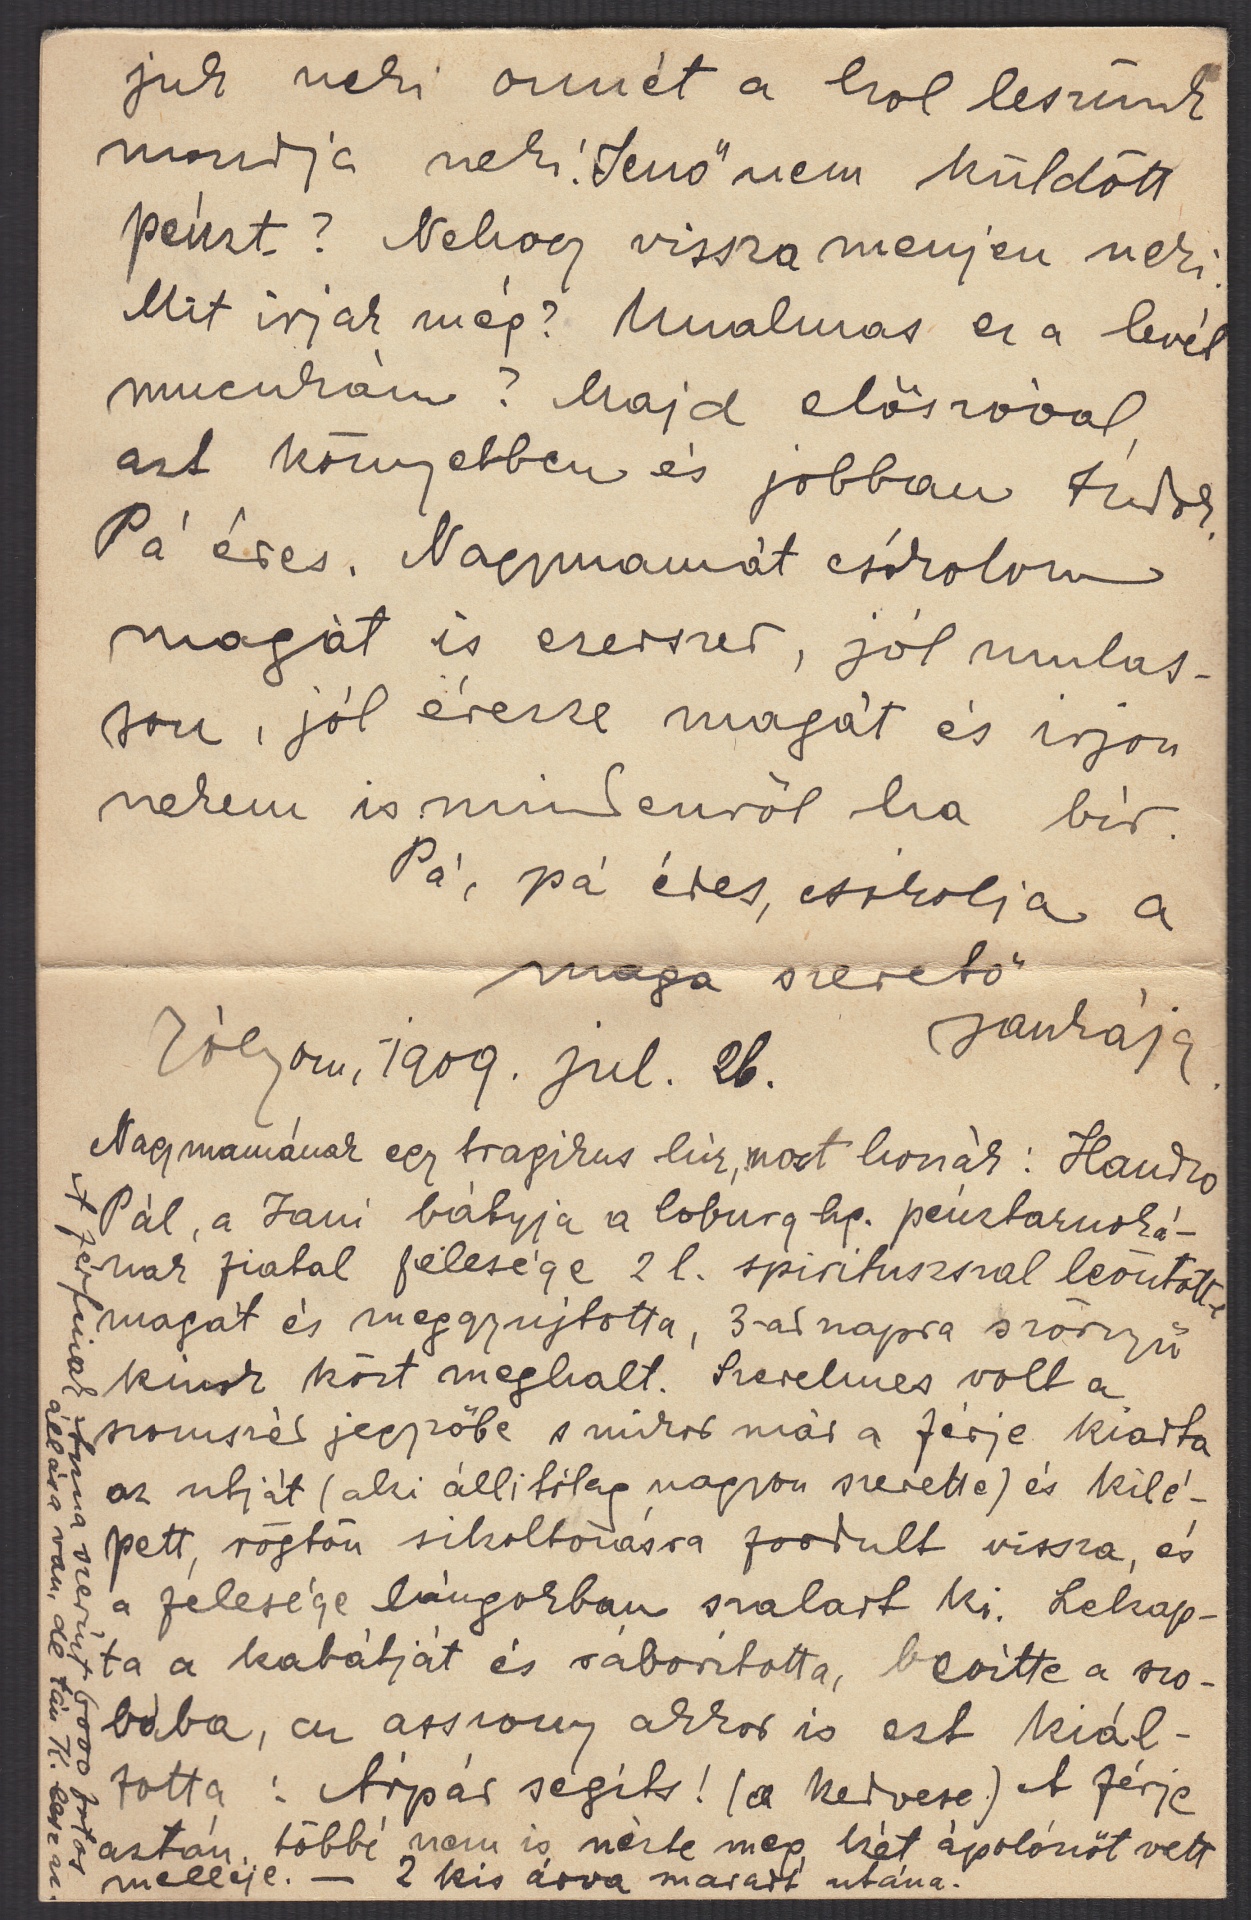 juk neki onnét a hol leszünk
mondja neki! Jenő nem küldött
pénzt? Nehogy vissza menjen neki.
Mit irjak még? Unalmas ez a levél
mucukám? Majd élőszóval,
azt könnyebben és jobban tudok.
Pá édes. Nagymamát csókolom
magát is ezerszer, jól mulas-
son, jól érezze magát és irjon
nekem is mindenről ha bir.
Pá, pá édes, csókolja a
maga szerető
Jankája.
Zólyom, 1909. jul. 26.
Nagymamának egy tragikus hir, most hozzák: Handzo
Pál, a Jani bátyja a Coburg hg. pénztárnoká-
nak fiatal felesége 2 l. spiritusszal leöntötte
magát és meggyujtotta, 3-ad napra szörnyü
kinok közt meghalt. Szerelmes volt a
szomszéd jegyzőbe s mikor már a férje kiadta
az utját (aki állitólag nagyon szerette) és kilé-
pett, rögtön sikoltozásra fordult vissza, és
a felesége lángokban szaladt ki. Lekap-
ta a kabátját és ráboritotta, bevitte a szo-
bába, az asszony akkor is ezt kiál-
totta: Árpád segits! (a kedvese.) A férje
aztán többé nem is nézte meg, két ápolónőt vett
melléje. — 2 kis árva maradt utána.
A férfinak Anna szerint 6000 frtos
állása van, de tán K.